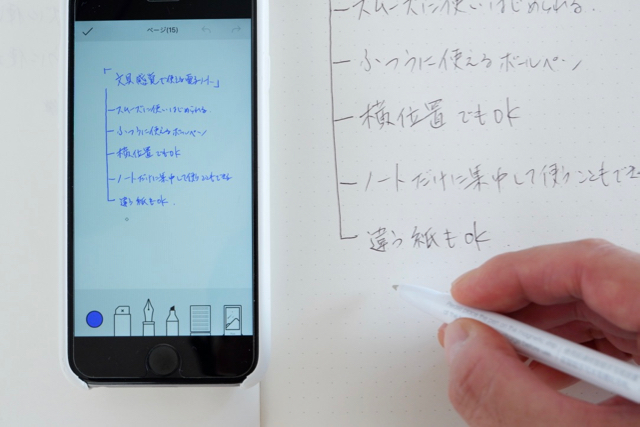 ページ(15)
「文具感覚で使える電子ノート」
スムーズに使いはじめられる
ふつうに使えるボールペン
横位置でもOK
ノートだけに集中して使うこともできる
違う紙もOK.
スムーズに使いはじめられる.
ふつうに使えるボールペン
横位置でもOK
ノートだけに集中して使うこともでき
違う紙もOK